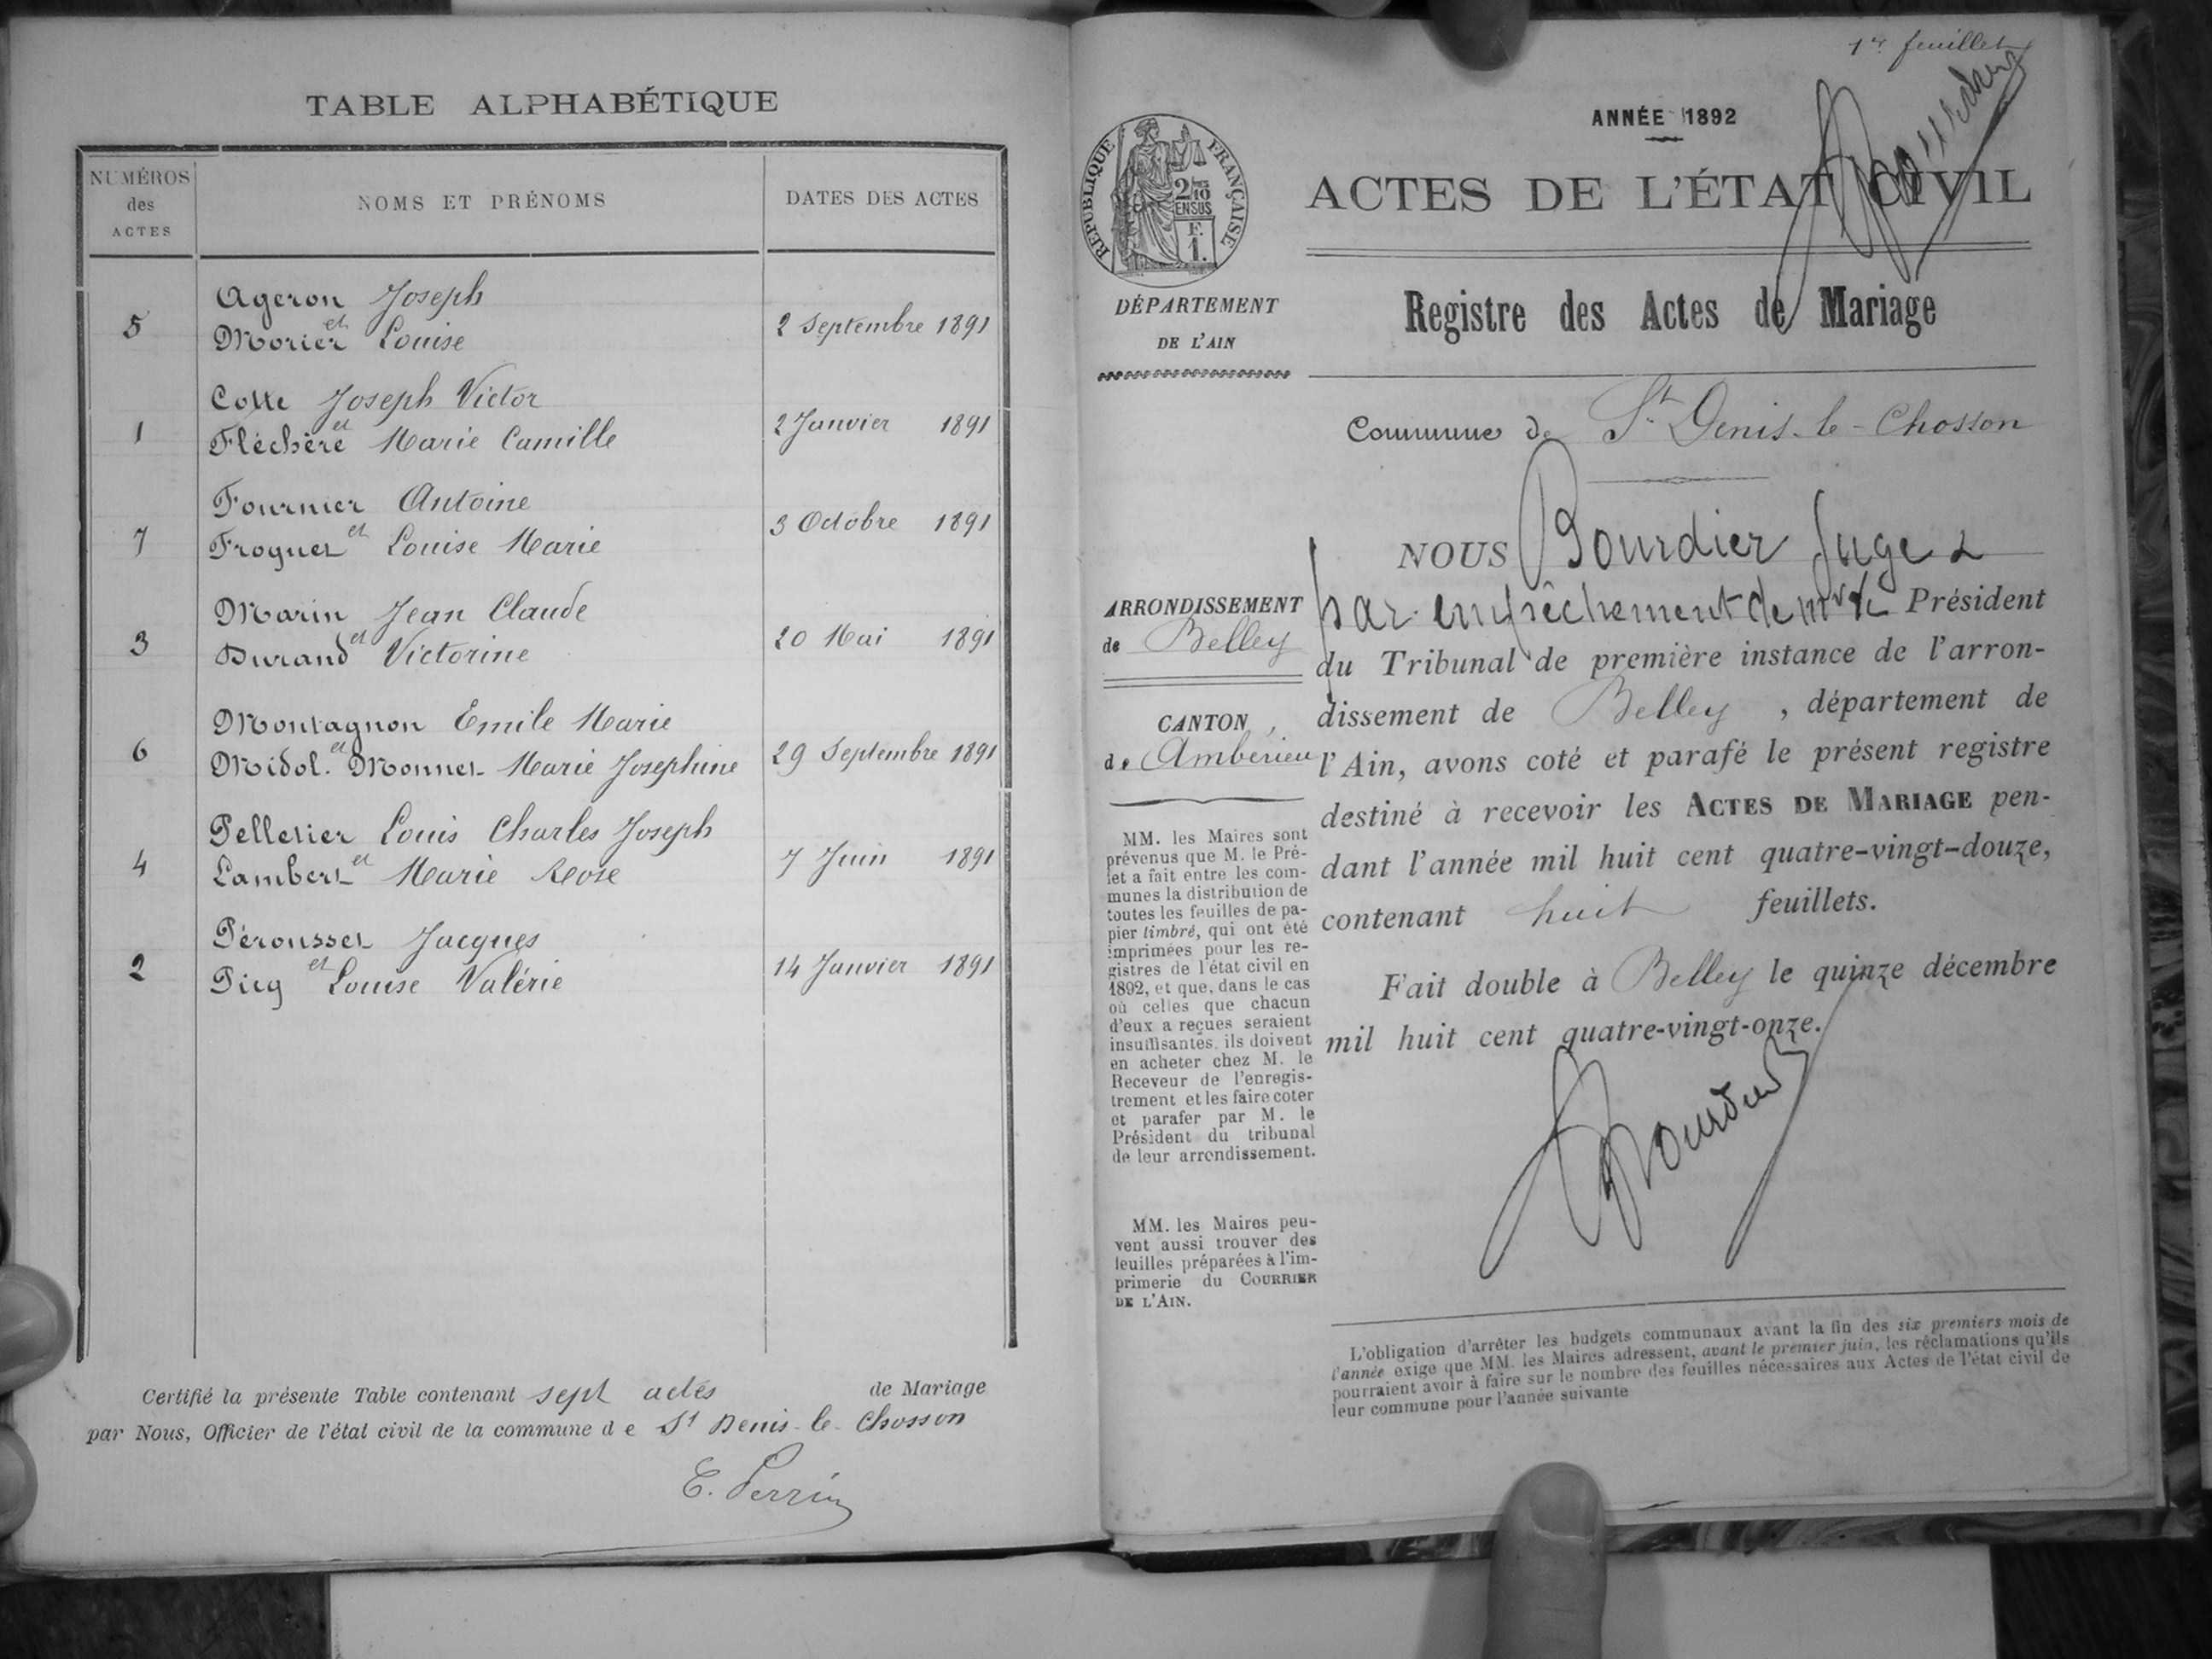 TABLE ALPHABÉTIQUE
NUMÉROS
des
ACTES
NOMS ET PRÉNOMS
DATES DES ACTES
Ageron Joseph
5 et 2 Septembre 1891
Morier Louise
Cotte Joseph Victor
1 et 2 Janvier 1891
Fléchère Marie Camille
Fournier Antoine
7 et 3 Octobre 1891
Froguet Louise Marie
Marin Jean Claude
3 et 20 Mai 1891
Durand Victorine
Montagnon Emile Marie
6 et 29 Septembre 1891
Midol-Monnet Marie Josephine
Pelletier Louis Charles Joseph
4 et 7 Juin 1891
Lambert Marie Rose
Pérousset Jacques
2 et 14 Janvier 1891
Picq Louise Valérie
Certifié la présente Table contenant sept actes de Mariage
par Nous, Officier de l'état civil de la commune de St Denis-le-Chosson
E. Perrin
1er feuillet
ANNÉE 1892
RÉPUBLIQUE FRANÇAISE
2/10
EN SUS
F.
1.
ACTES DE L'ÉTAT CIVIL
Registre des Actes de Mariage
DÉPARTEMENT
DE L'AIN
Commune de St Denis-le-Chosson
ARRONDISSEMENT
de Belley
CANTON
de Ambérieu
MM. les Maires sont
prévenus que M. le Pré-
fet a fait entre les com-
munes la distribution de
toutes les feuilles de pa-
pier timbré, qui ont été
imprimées pour les re-
gistres de l'état civil en
1892, et que, dans le cas
où celles que chacun
d'eux a reçues seraient
insuffisantes, ils doivent
en acheter chez M. le
Receveur de l'enregis-
trement et les faire coter
et parafer par M. le
Président du tribunal
de leur arrondissement.
MM. les Maires peu-
vent aussi trouver des
feuilles préparées à l'im-
primerie du COURRIER
DE L'AIN.
NOUS Bourdier Juge
par empêchement de Mr le Président
du Tribunal de première instance de l'arron-
dissement de Belley, département de
l'Ain, avons coté et parafé le présent registre
destiné à recevoir les ACTES DE MARIAGE pen-
dant l'année mil huit cent quatre-vingt-douze,
contenant huit feuillets.
Fait double à Belley le quinze décembre
mil huit cent quatre-vingt-onze.
Bourdier
L'obligation d'arrêter les budgets communaux avant la fin des six premiers mois de
l'année exige que MM. les Maires adressent, avant le premier juin, les réclamations qu'ils
pourraient avoir à faire sur le nombre des feuilles nécessaires aux Actes de l'état civil de
leur commune pour l'année suivante